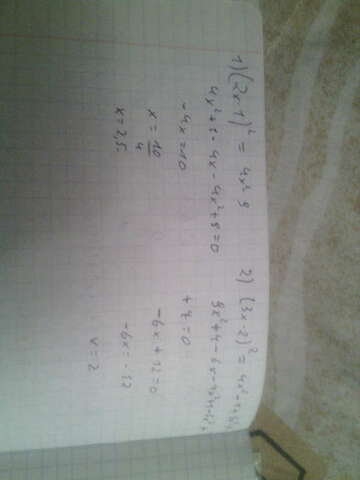 1) (2x-1)² = 4x² 9
4x²+1-4x-4x²+9=0
-4x=-10
x = 10/4
x = 2,5.
2) (3x-2)² =
+ 4 = 0
-6x+12=0
-6x=-12
x = 2